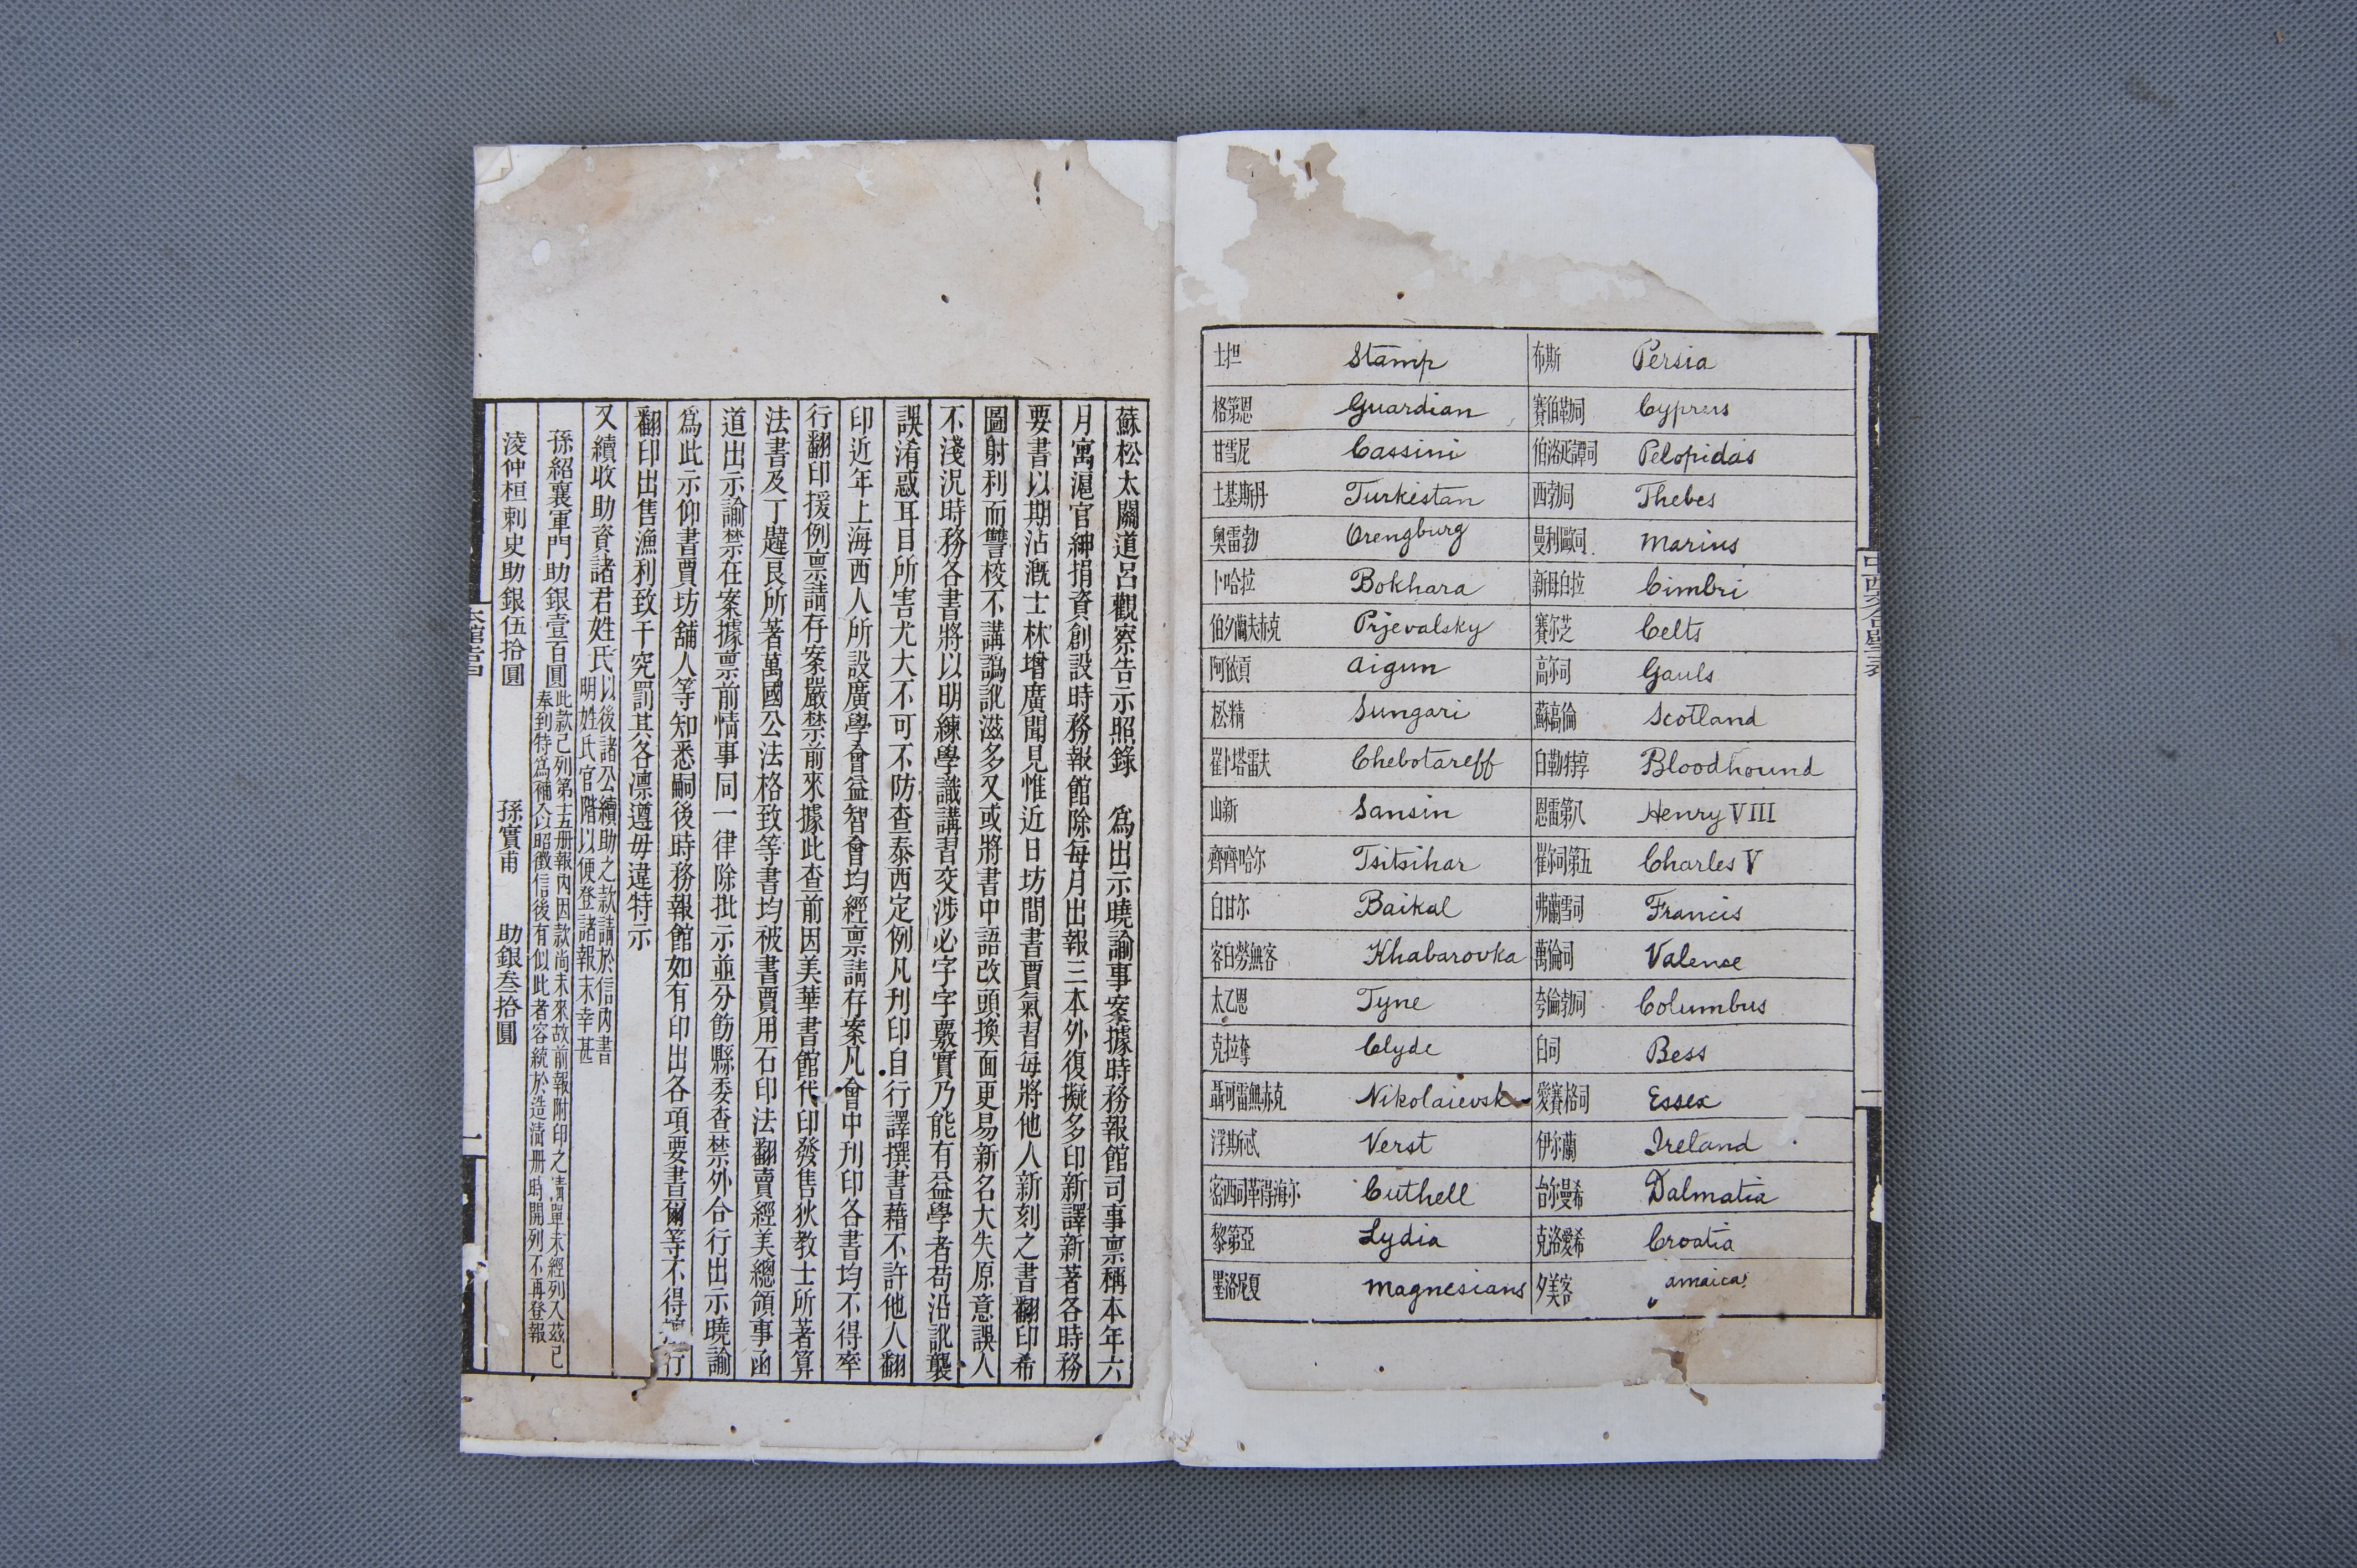 布斯 Persia
賽伯勒司 Cyprus
伯洛必譚司 Pelopidas
西勃司 Thebes
曼利歐司 Marius
新母白拉 Cimbri
賽尔芝 Celts
高尔司 Gauls
蘇高倫 Scotland
白勒特享 Bloodhound
恩雷第八 Henry VIII
崔尔司第五 Charles V
弗蘭雪司 Francis
萬倫司 Valence
夸倫勃司 Columbus
白司 Bess
愛賽格司 Essex
伊尔蘭 Ireland
台尔曼希 Dalmatia
克洛愛希 Croatia
夕美客 amaica
士担 Stamp
格第恩 Guardian
甘雪尼 Cassini
土基斯丹 Turkistan
奧雷勃 Orengburg
卜哈拉 Bokhara
伯夕蘭夫赤克 Prjevalsky
阿依貢 Aigun
松精 Sungari
崔卜塔雷夫 Chebotareff
山新 Sansin
齊齊哈尔 Tsitsihar
白甘尔 Baikal
客白勞無客 Khabarovka
太乙恩 Tyne
克拉奪 Clyde
聶可雷無赤克 Nikolaievsk
浮斯忒 Verst
密西司革得海尔 Cuthell
黎第亞 Lydia
墨洛尼夏 Magnesians
蘇松太關道呂觀察告示照錄　為出示曉諭事案據時務報館司事禀稱本年六
月寓滬官紳捐資創設時務報館除每月出報三本外復擬多印新譯新著各時務
要書以期沾溉士林增廣聞見惟近日坊間書賈氣習每將他人新刻之書翻印希
圖射利而讐校不講譌訛滋多又或將書中語改頭換面更易新名大失原意誤人
不淺況時務各書將以明練學識講習交涉必字字覈實乃能有益學者苟沿訛襲
誤淆惑耳目所害尤大不可不防查泰西定例凡刊印自行譯撰書藉不許他人翻
印近年上海西人所設廣學會益智會均經禀請存案凡會中刊印各書均不得率
行翻印援例禀請存案嚴禁前來據此查前因美華書館代印發售狄教士所著算
法書及丁韙良所著萬國公法格致等書均被書賈用石印法翻賣經美總領事函
道出示諭禁在案據禀前情事同一律除批示並分飭縣委查禁外合行出示曉諭
為此示仰書賈坊舖人等知悉嗣後時務報館如有印出各項要書爾等不得擅行
翻印出售漁利致干究罰其各凛遵毋違特示
又續收助資諸君姓氏以後諸公續助之款請於信內書
明姓氏官階以便登諸報末幸甚
孫紹襄軍門助銀壹百圓此款已列第十五册報內因款尚未來故前報附印之清單未經列入茲已
奉到特為補入以昭徵信後有似此者容統於造清册時開列不再登報
淩仲桓刺史助銀伍拾圓　孫實甫　助銀叁拾圓